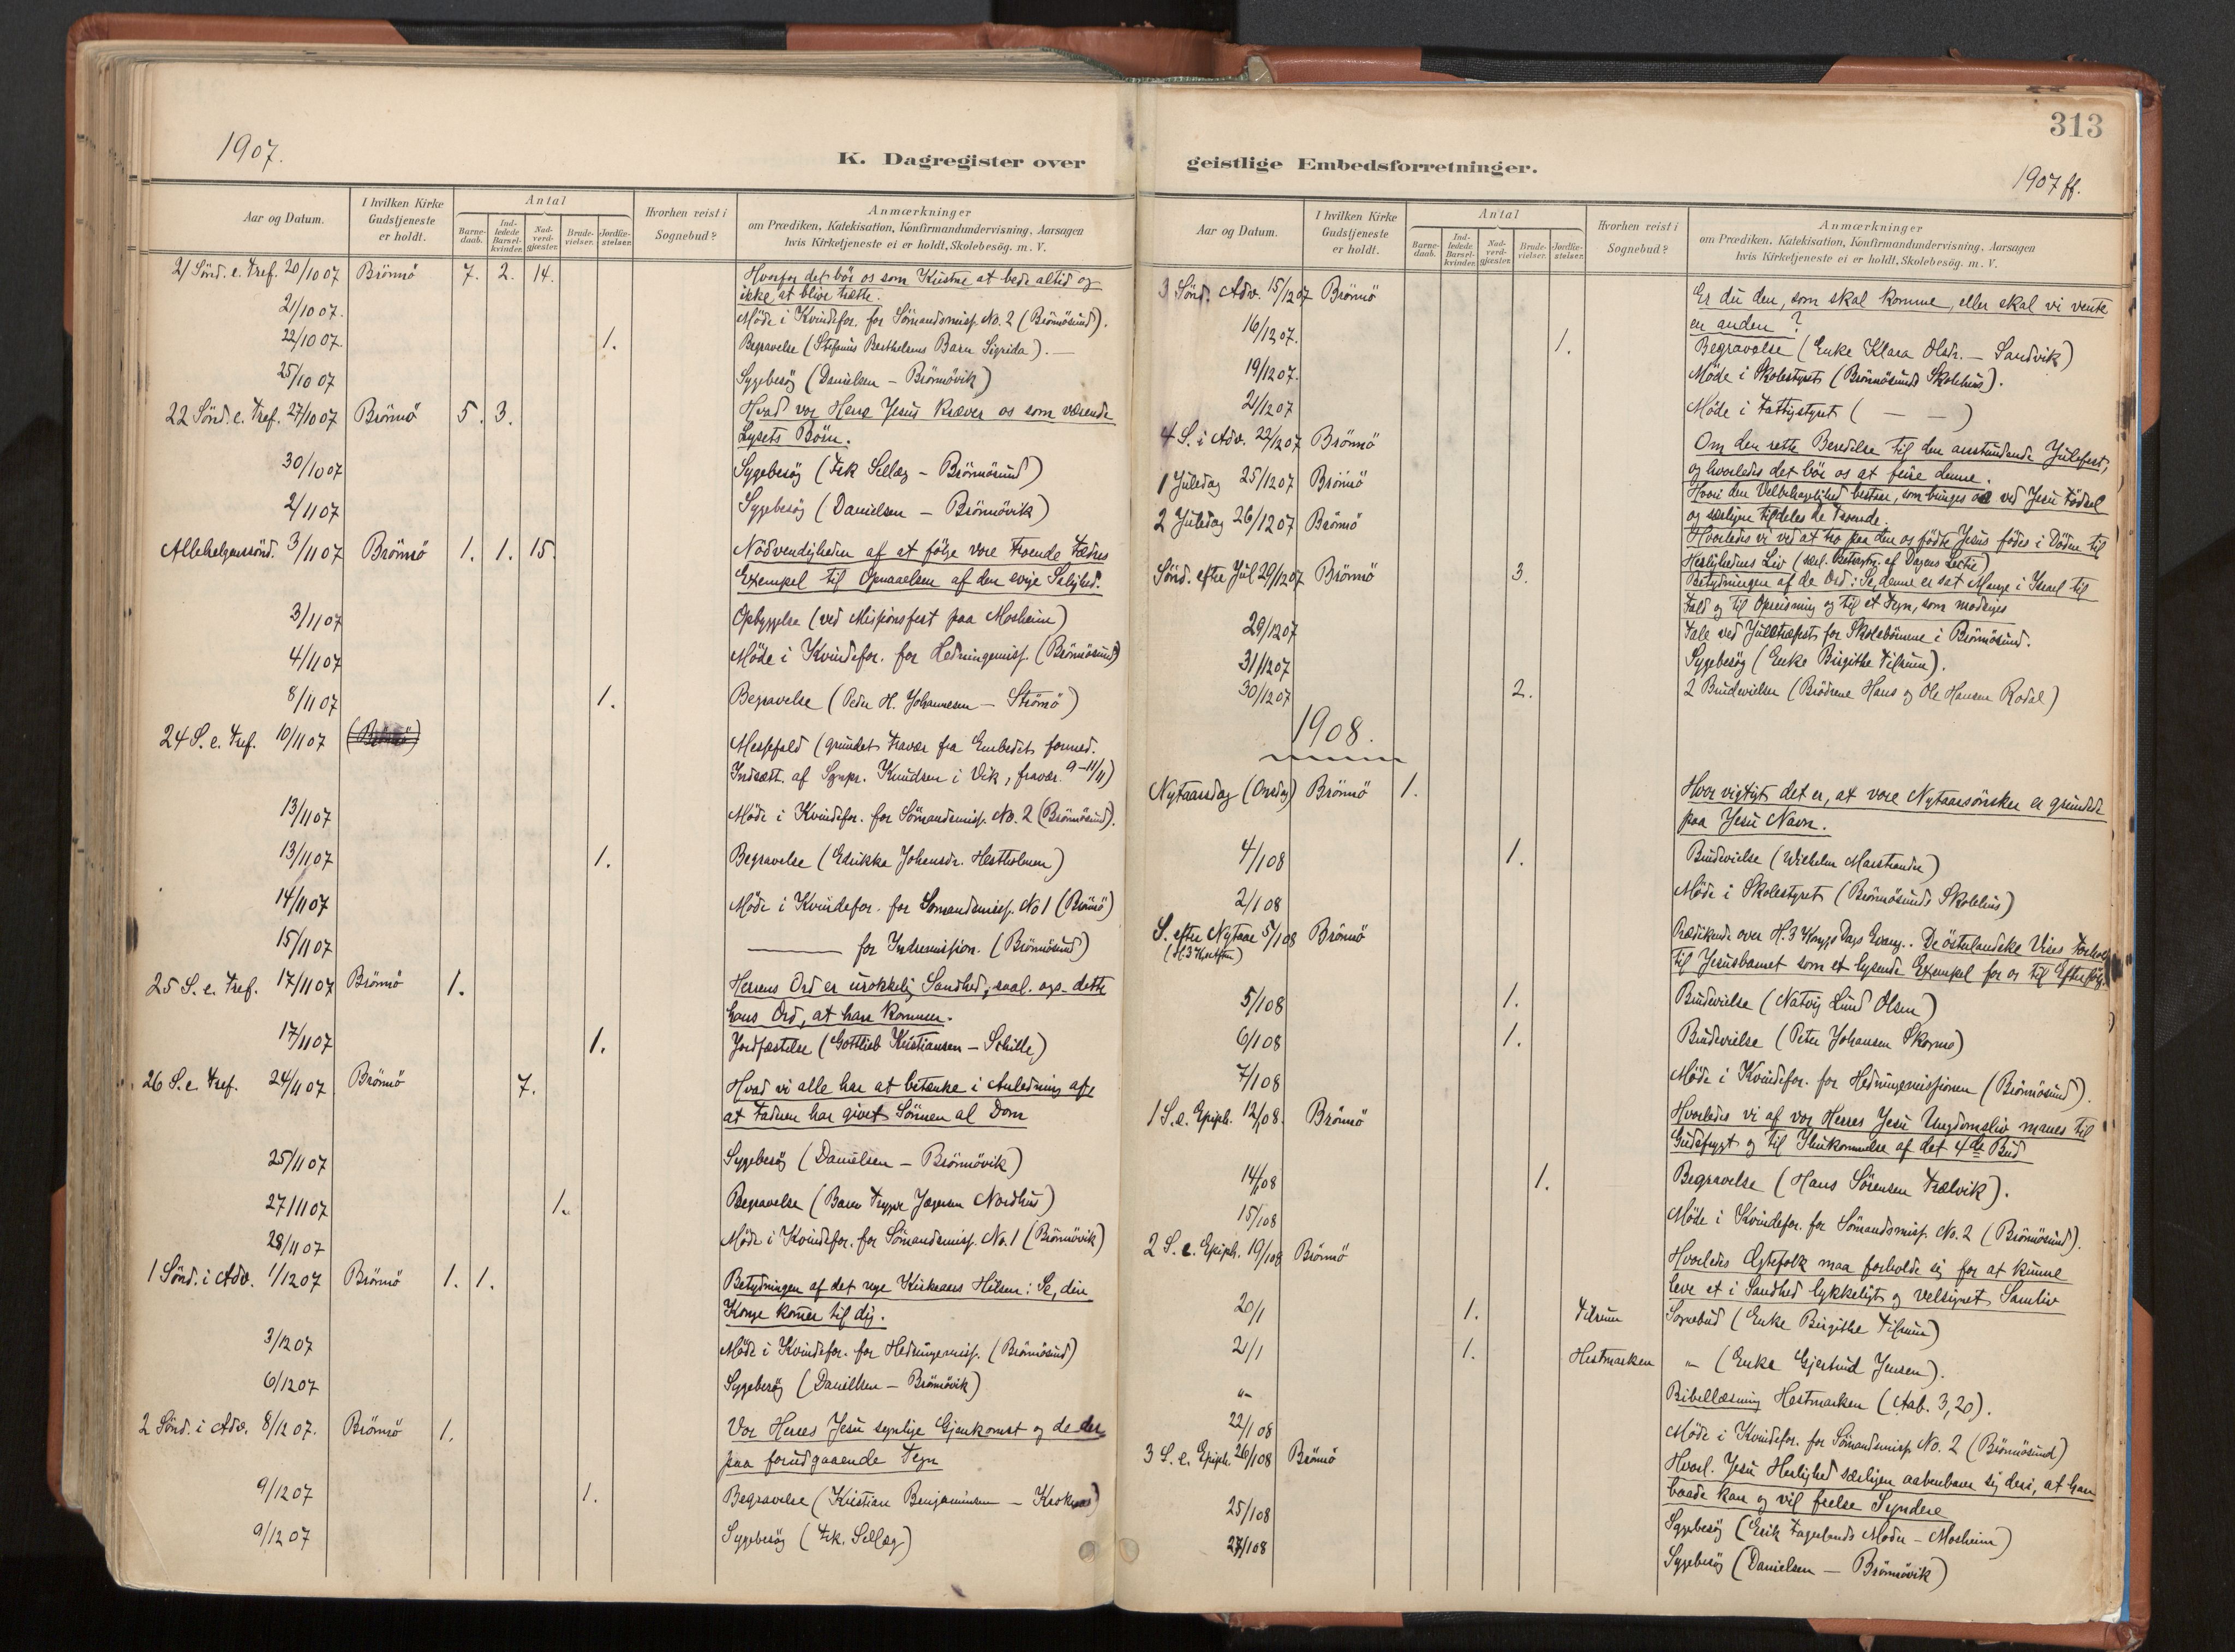 1907.
K. Dagregister over
Aar og Datum.
I hvilken Kirke Gudstjeneste er holdt.
Antal
Barne-daab.
Ind-ledede Barsel-kvinder.
Nad-verd-gjæster.
Brude-vielser.
Jordfæ-stelser.
Hvorhen reist i Sognebud?
Anmærkninger
om Prædiken, Katekisation, Konfirmandundervisning, Aarsagen
hvis Kirketjeneste ei er holdt, Skolebesög. m. V.
21 Sönd. e. Tref. 20/10 07 Brönnö 7. 2. 14. Hvorfor det bör os som Kristne at bede altid og
ikke at blive trætte.
21/10 07. Möde i Kvindefor. for Sömandsmisj. No. 2 (Brönnösund).
22/10 07. 1. Begravelse (Stefanus Berthelsens Barn Sigrida). —
25/10 07 Sygebesög (Danielsen – Brönnövik)
22 Sönd. e. Tref. 27/10 07 Brönnö 5. 3. Hvad vor Herre Jesus kræver os som værende
Lysets Börn.
30/10 07 Sygebesög (Frk Sellæg – Brönnösund)
2/11 07 Sygebesög (Danielsen – Brönnövik)
Allehelgenssönd. 3/11 07 Brönnö 1. 1. 15. Nödvendigheden af at fölge vore troende Fædres
Exempel til Opnaaelsen af den evige Salighed.
3/11 07 Opbyggelse (ved Missionsfest paa Mosheim)
4/11 07 Möde i Kvindefor. for Hedningemisj. (Brönnösund)
8/11 07 1. Begravelse (Peder H. Johannesen – Strömö)
24 S. e. Tref. 10/11 07 (Brönnö) Messefald (grundet Fravær fra Embedet formed.
Indsætt. af Sgnpr. Knudsen i Vik, fravær. 9–11/11)
13/11 07 Möde i Kvindefor. for Sömandsmisj. No. 2 (Brönnösund).
13/11 07 1. Begravelse (Edrikke Johensdr. Hestholmen)
14/11 07 Möde i Kvindefor. for Sömandsmisj. No 1 (Brönnö)
15/11 07 ——— for Indremission. (Brönnösund)
25 S. e. Tref. 17/11 07 Brönnö 1. Herrens Ord er urokkelig Sandhed, saal. ogs. dette
hans Ord, at han kommer.
17/11 07 1. Jordfæstelse (Gottlieb Kristiansen – Schille)
26 S. e. Tref. 24/11 07 Brönnö 7. Hvad vi alle har at betænke i Anledning af,
at Faderen har givet Sönnen al Dom
25/11 07 Sygebesög (Danielsen – Brönnövik)
27/11 07 1. Begravelse (Barn Trygve Nordhus)
28/11 07 Möde i Kvindefor. for Sömandsmisj. No. 1 (Brönnövik)
1 Sönd. i Adv. 1/12 07 Brönnö 1. 1. Betydningen af det nye Kirkeaars Hilsen: Se, din
Konge kommer til dig.
3/12 07 Möde i Kvindefor. for Hedningemisj. (Brönnösund)
6/12 07 Sygebesög (Danielsen – Brönnövik)
2 Sönd. i Adv. 8/12 07. Brönnö 1. Vor Herres Jesu synlige Gjenkomst og de der
paa forudgaaende Tegn
9/12 07 1. Begravelse (Kristian Benjaminsen – Kroknes)
9/12 07 Sygebesög (Frk. Sellæg)
313
geistlige Embedsforretninger.
1907 ff.
Aar og Datum.
I hvilken Kirke Gudstjeneste er holdt.
Antal
Barne-daab.
Ind-ledede Barsel-kvinder.
Nad-verd-gjæster.
Brude-vielser.
Jordfæ-stelser.
Hvorhen reist i Sognebud?
Anmærkninger
om Prædiken, Katekisation, Konfirmandundervisning, Aarsagen
hvis Kirketjeneste ei er holdt, Skolebesög. m. V.
3 Sönd. Adv. 15/12 07 Brönnö Er du den, som skal komme, eller skal vi vente
en anden?
16/12 07. 1. Begravelse (Enke Klara Olsdr. – Sandvik)
19/12 07. Möde i Skolestyret (Brönnösunds Skolehus).
21/12 07 Möde i Fattigstyret ( — — )
4 S. i Adv. 22/12 07 Brönnö Om den rette Beredelse til den anstundende Julefest,
og hvorledes det bör os at feire denne.
1 Juledag 25/12 07 Brönnö Hvori den Velbehagelighed bestaar, som bringes os ved Jesu Födsel
og særligen tildeles de Troende.
2 Juledag 26/12 07 Brönnö Hvorledes vi ved at tro paa den os födte Jesus födes i Döden til
Herlighedens Liv (sæl. Betragtn. af Dagens Lectie)
Sönd. efter Jul 29/12 07 Brönnö 3. Betydningen af de Ord: Se, denne er sat Mange i Israel til
Fald og til Opreisning og til et Tegn, som modsiges
29/12 07 Tale ved Juletræfest for Skolebörnene i Brönnösund.
31/12 07 Sygebesög (Enke Birgithe Tilrum).
30/12 07 2. 2 Brudevielser (Brödrene Hans og Ole Hansen Rodal)
1908.
Nytaarsdag (Onsdag) Brönnö 1. Hvor vigtigt det er, at vore Nytaarsönsker er grundet
paa Jesu Navn.
4/1 08 1. Brudevielse (Wilhelm Marstrander)
2/1 08 Möde i Skolestyret (Brönnösunds Skolehus)
S. efter Nytaar 5/1 08 Brönnö Prædikende over H. 3 Kongs Dags Evang.. De österlandske Vises Forhold
til Jesusbarnet som et lysende Exempel for os til Efterfölg.
5/1 08 1. Brudevielse (Natvig Lund Olsen)
6/1 08 1. Brudevielse (Peter Johansen Skarmo)
7/1 08 Möde i Kvindefor. for Hedningemissionen (Brönnösund).
1 S. e. Epiph. 12/1 08. Brönnö Hvorledes vi af vor Herres Jesu Ungdomsliv manes til
Gudsfrygt og til Ihukommelse af det 4de Bud
14/1 08 1. Begravelse (Hans Sörensen Trælvik).
15/1 08 Möde i Kvindefor. for Sömandsmisj. No. 2 (Brönnösund).
2 S. e. Epiph. 19/1 08 Brönnö Hvorledes Ægtefolk maa forholde sig for at kunne
leve et i Sandhed lykkeligt og velsignet Samliv
20/1 1. Tilrum Sognebud (Enke Birgithe Tilrum)
21/1 1. Hestmarken „– (Enke Gjertrud Jensen).
„– Bibellæsning Hestmarken (Aab. 3,20).
22/1 08 Möde i Kvindefor. for Sömandsmisj. No. 2 (Brönnösund)
3 S. e. Epiph. 26/1 08 Brönnö Hvorl. Jesu Herlighed særligen aabenbarer sig deri, at han
baade kan og vil frelse Syndere
25/1 08 Sygebesög (Erik Fagerlands Moder – Mosheim)
27/1 08 Sygebesög (Danielsen – Brönnövik)